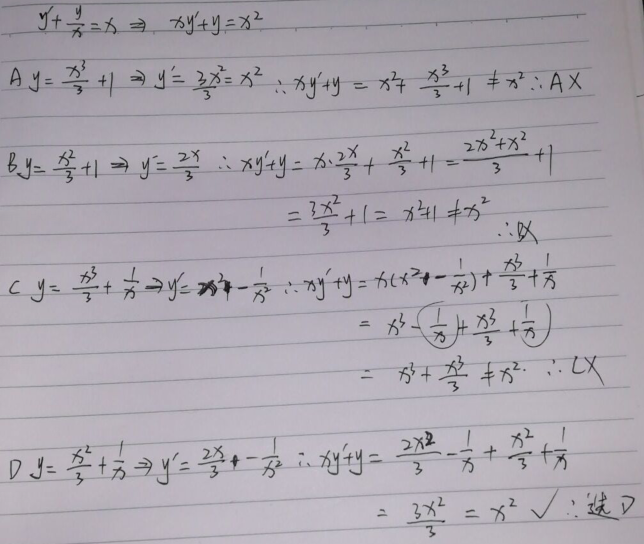 y'+y/x=x ⇒ xy'+y=x²
A y=x³/3+1 ⇒ y'=3x²/3=x² ∴xy'+y = x²+x³/3+1 ≠x² ∴A×
B y=x²/3+1 ⇒ y'=2x/3 ∴xy'+y= x·2x/3+x²/3+1=(2x²+x²)/3+1
=3x²/3+1= x²+1≠x²
∴B×
C y=x³/3+1/x ⇒y'=x²-1/x² ∴xy'+y= x(x²-1/x²)+x³/3+1/x
= x³-1/x+x³/3+1/x
= x³+x³/3≠x². ∴C×
D y=x²/3+1/x ⇒y'=2x/3-1/x² ∴xy'+y= 2x²/3-1/x+x²/3+1/x
= 3x²/3 = x² ✓ ∴选D